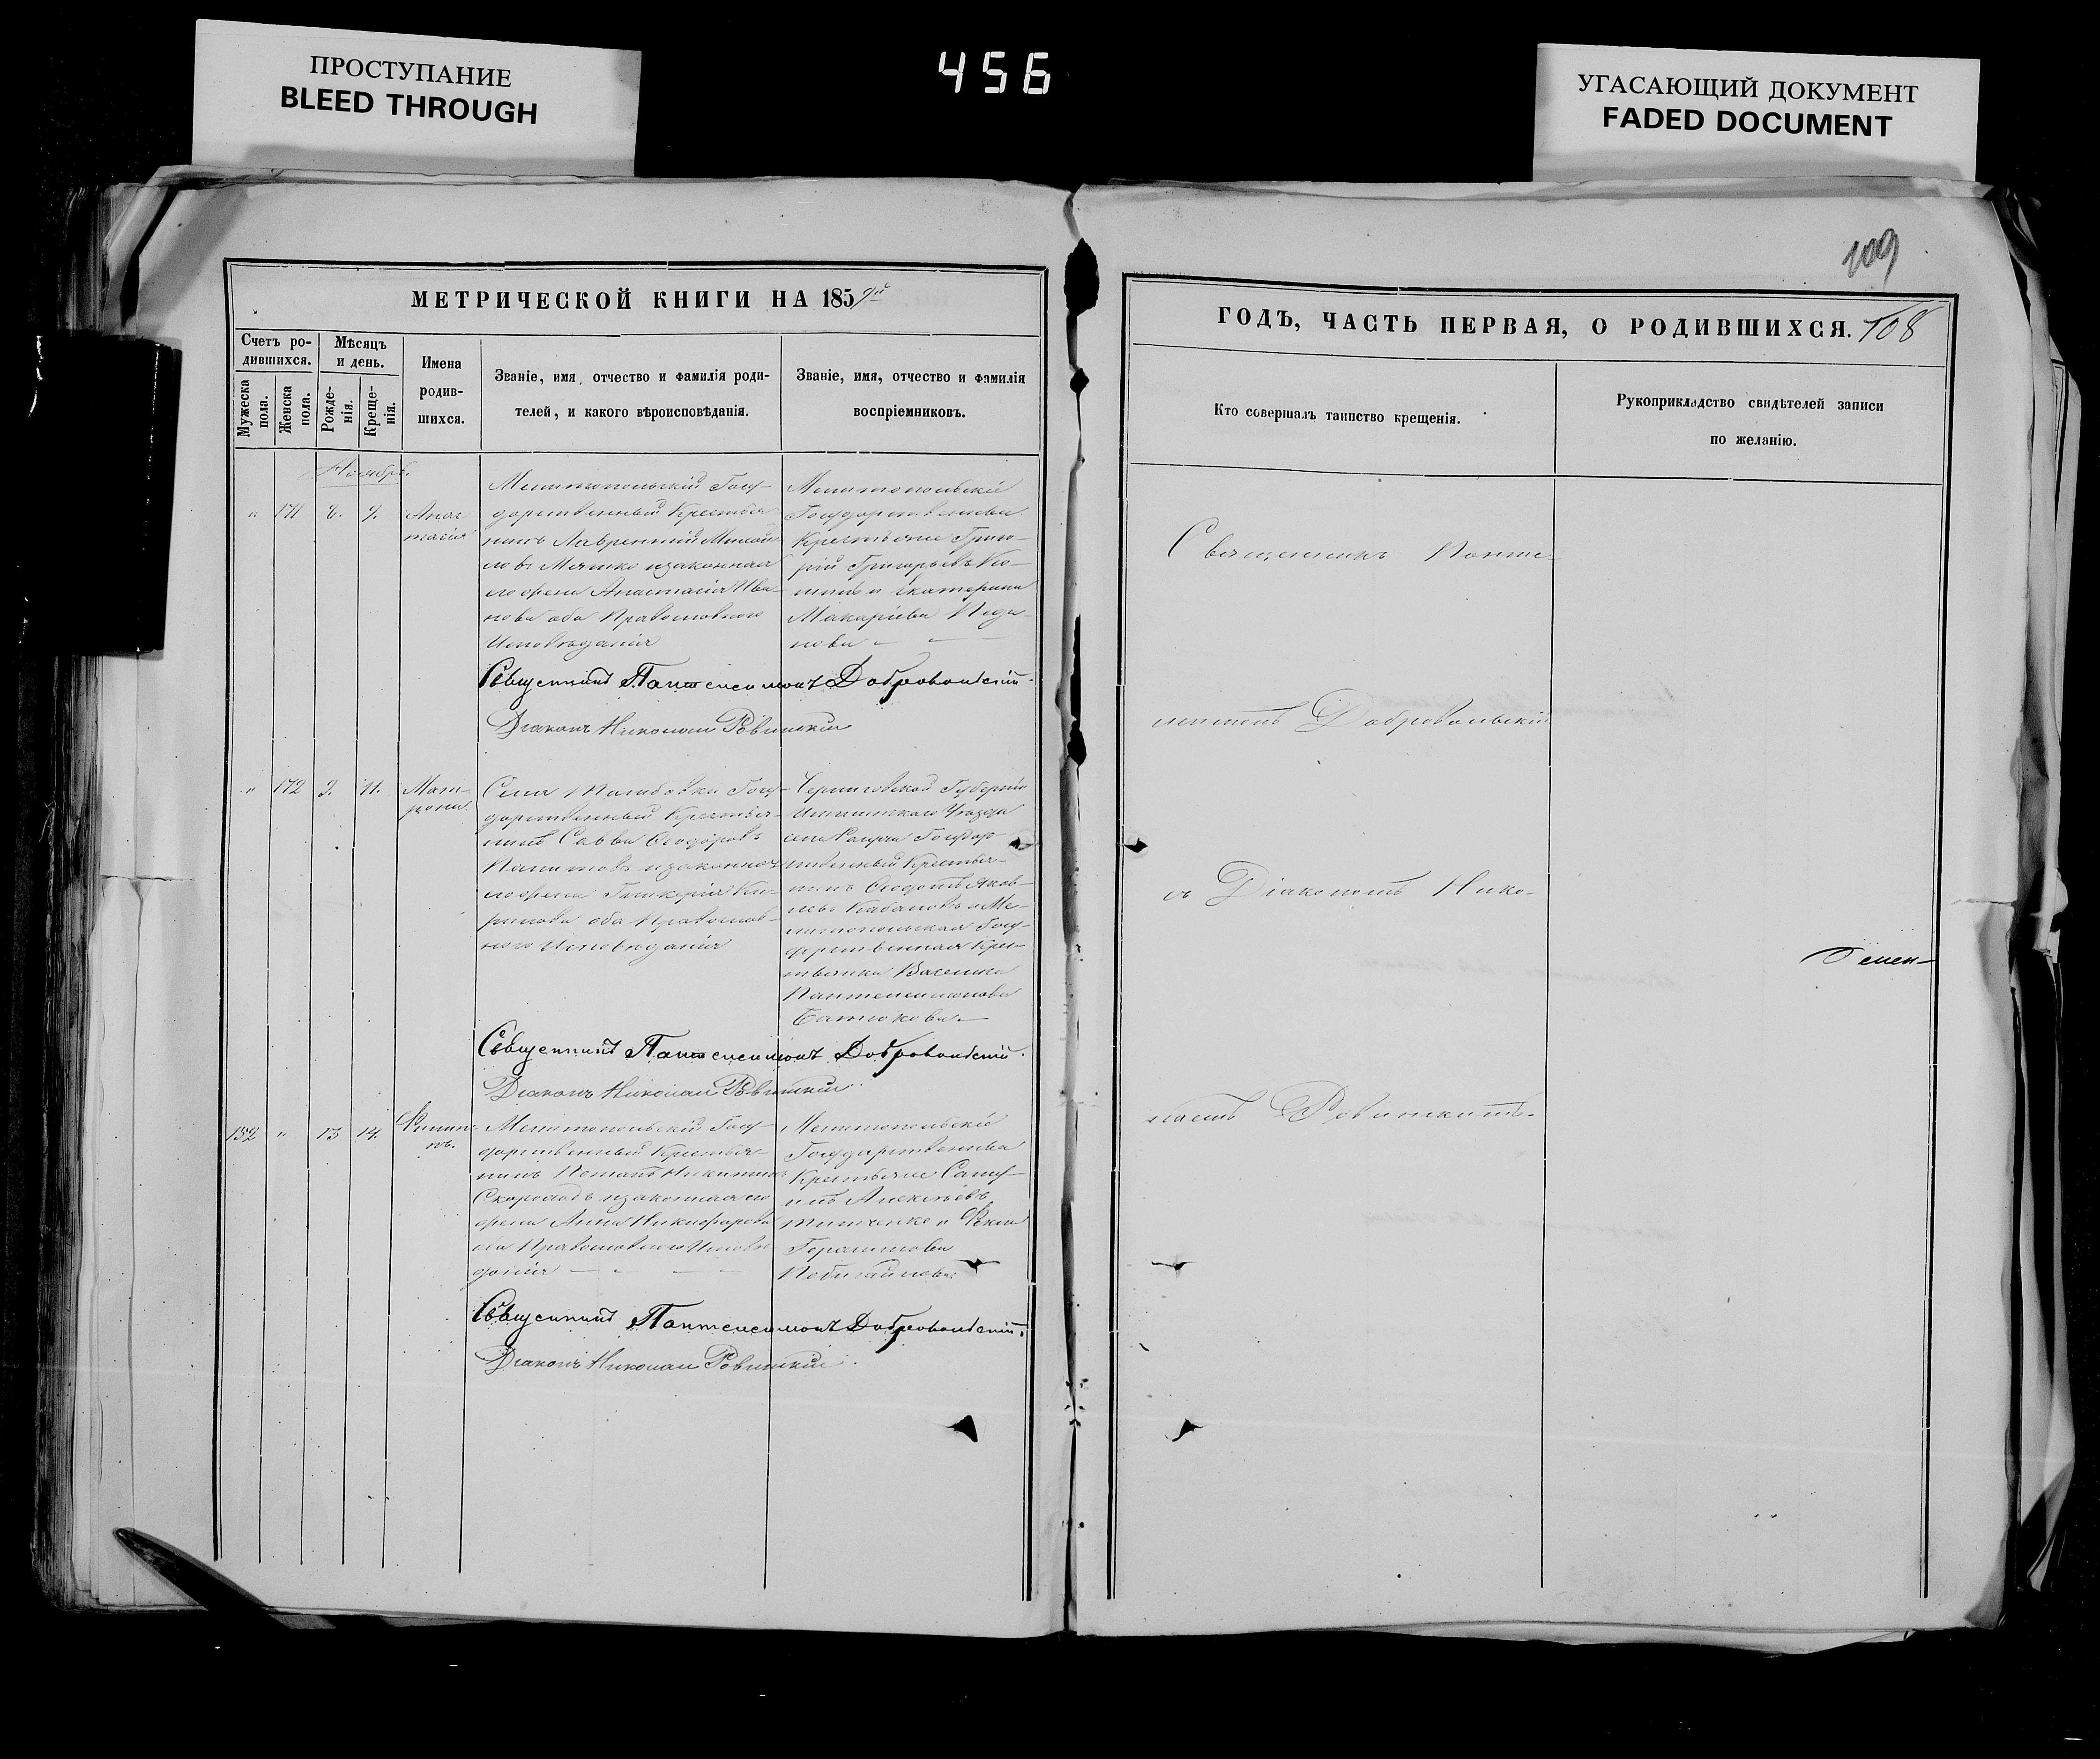 ПРОСТУПАНИЕ
BLEED THROUGH
456
УГАСАЮЩИЙ ДОКУМЕНТ
FADED DOCUMENT
МЕТРИЧЕСКОЙ КНИГИ НА 1859й
Счетъ ро-
дившихся.
Мѣсяцъ
и день.
Мужеска
пола.
Женска
пола.
Рожде-
нія.
Креще-
нія.
Имена
родив-
шихся.
Званіе, имя, отчество и фамилія роди-
телей, и какого вѣроисповѣданія.
Званіе, имя, отчество и фамилія
воспріемниковъ.
Ноябрь.
" 171 9. Анас
тасія
Мелитопольскій Госу-
дарственный Крестья
нинъ Лаврентій
законная
его жена Анастасія Ива-
нова оба Православнаго
Исповѣданія
Мелитопольскіе
Государственные
Крестьяне Григо-
рій Григорьевъ
и Екатерина
Макаріева
нова
Священникъ Пантелеимонъ Добровольскій.
Діаконъ Николай Ровинскій
" 172 9. 11. Мат-
рона.
Села Госу-
дарственный Крестья-
нинъ Савва Ѳеодоровъ
законная
его жена Гликерія Ки-
рилова оба Православ-
наго Исповѣданія
Черниговской Губерніи
Уѣзда
села Государ-
ственный Крестья-
нинъ Ѳедотъ Яков-
левъ и Ме-
литопольская Госу-
дарственная Крес-
тьянка Василиса
Пантелеимонова
Священникъ Пантелеимонъ Добровольскій.
Діаконъ Николай Ровинскій.
152 " 13 14. Филип-
пъ.
Мелитопольскій Госу-
дарственный Крестья-
нинъ Потапъ Никитинъ
законная его
жена Анна Никифорова
оба Православнаго Исповѣ-
данія
Мелитопольскіе
Государственные
Крестьяне Саму-
илъ Алексѣевъ
и Ѳекла
Герасимова
Священникъ Пантелеимонъ Добровольскій.
Діаконъ Николай Ровинскій.
109
ГОДЪ, ЧАСТЬ ПЕРВАЯ, О РОДИВШИХСЯ. 108
Кто совершалъ таинство крещенія.
Рукоприкладство свидѣтелей записи
по желанію.
Священникъ Панте-
леимонъ Добровольскій
съ Діакономъ Нико-
лаемъ Ровинскимъ.